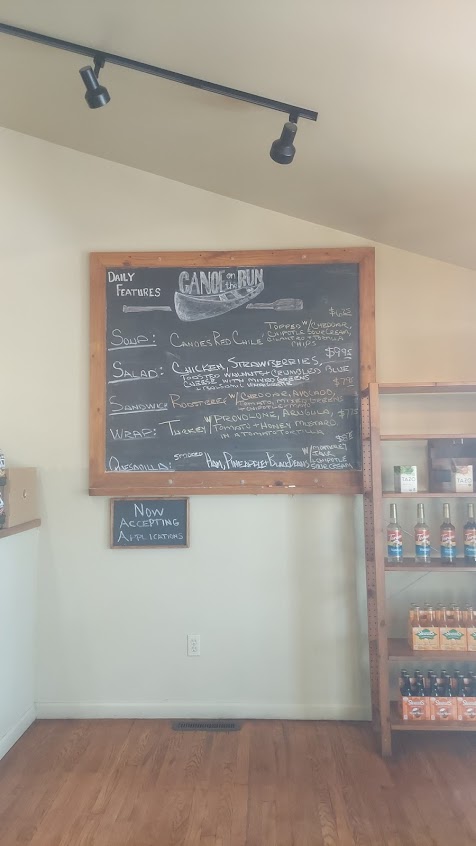 DAILY
FEATURES
CANOE on the RUN
SOUP: CANOES RED CHILE TOPPED W/ CHEDDAR,
CHIPOTLE SOUR CREAM,
CILANTRO + TORTILLA
CHIPS
SALAD: CHICKEN, STRAWBERRIES,
TOASTED WALNUTS + CRUMBLED BLUE
CHEESE WITH MIXED GREENS
+ BALSAMIC VINAIGRETTE
SANDWICH ROAST BEEF W/ CHEDDAR, AVOCADO,
TOMATO, MIXED GREENS
WRAP: TURKEY W/ PROVOLONE, ARUGULA,
TOMATO + HONEY MUSTARD
IN A TOMATO TORTILLA
QUESADILLA: SMOKED HAM, PINEAPPLE + BLACK BEANS
W/ MONTEREY
JACK
+ CHIPOTLE
SOUR CREAM
NOW
ACCEPTING
APPLICATIONS
TAZO
Torani